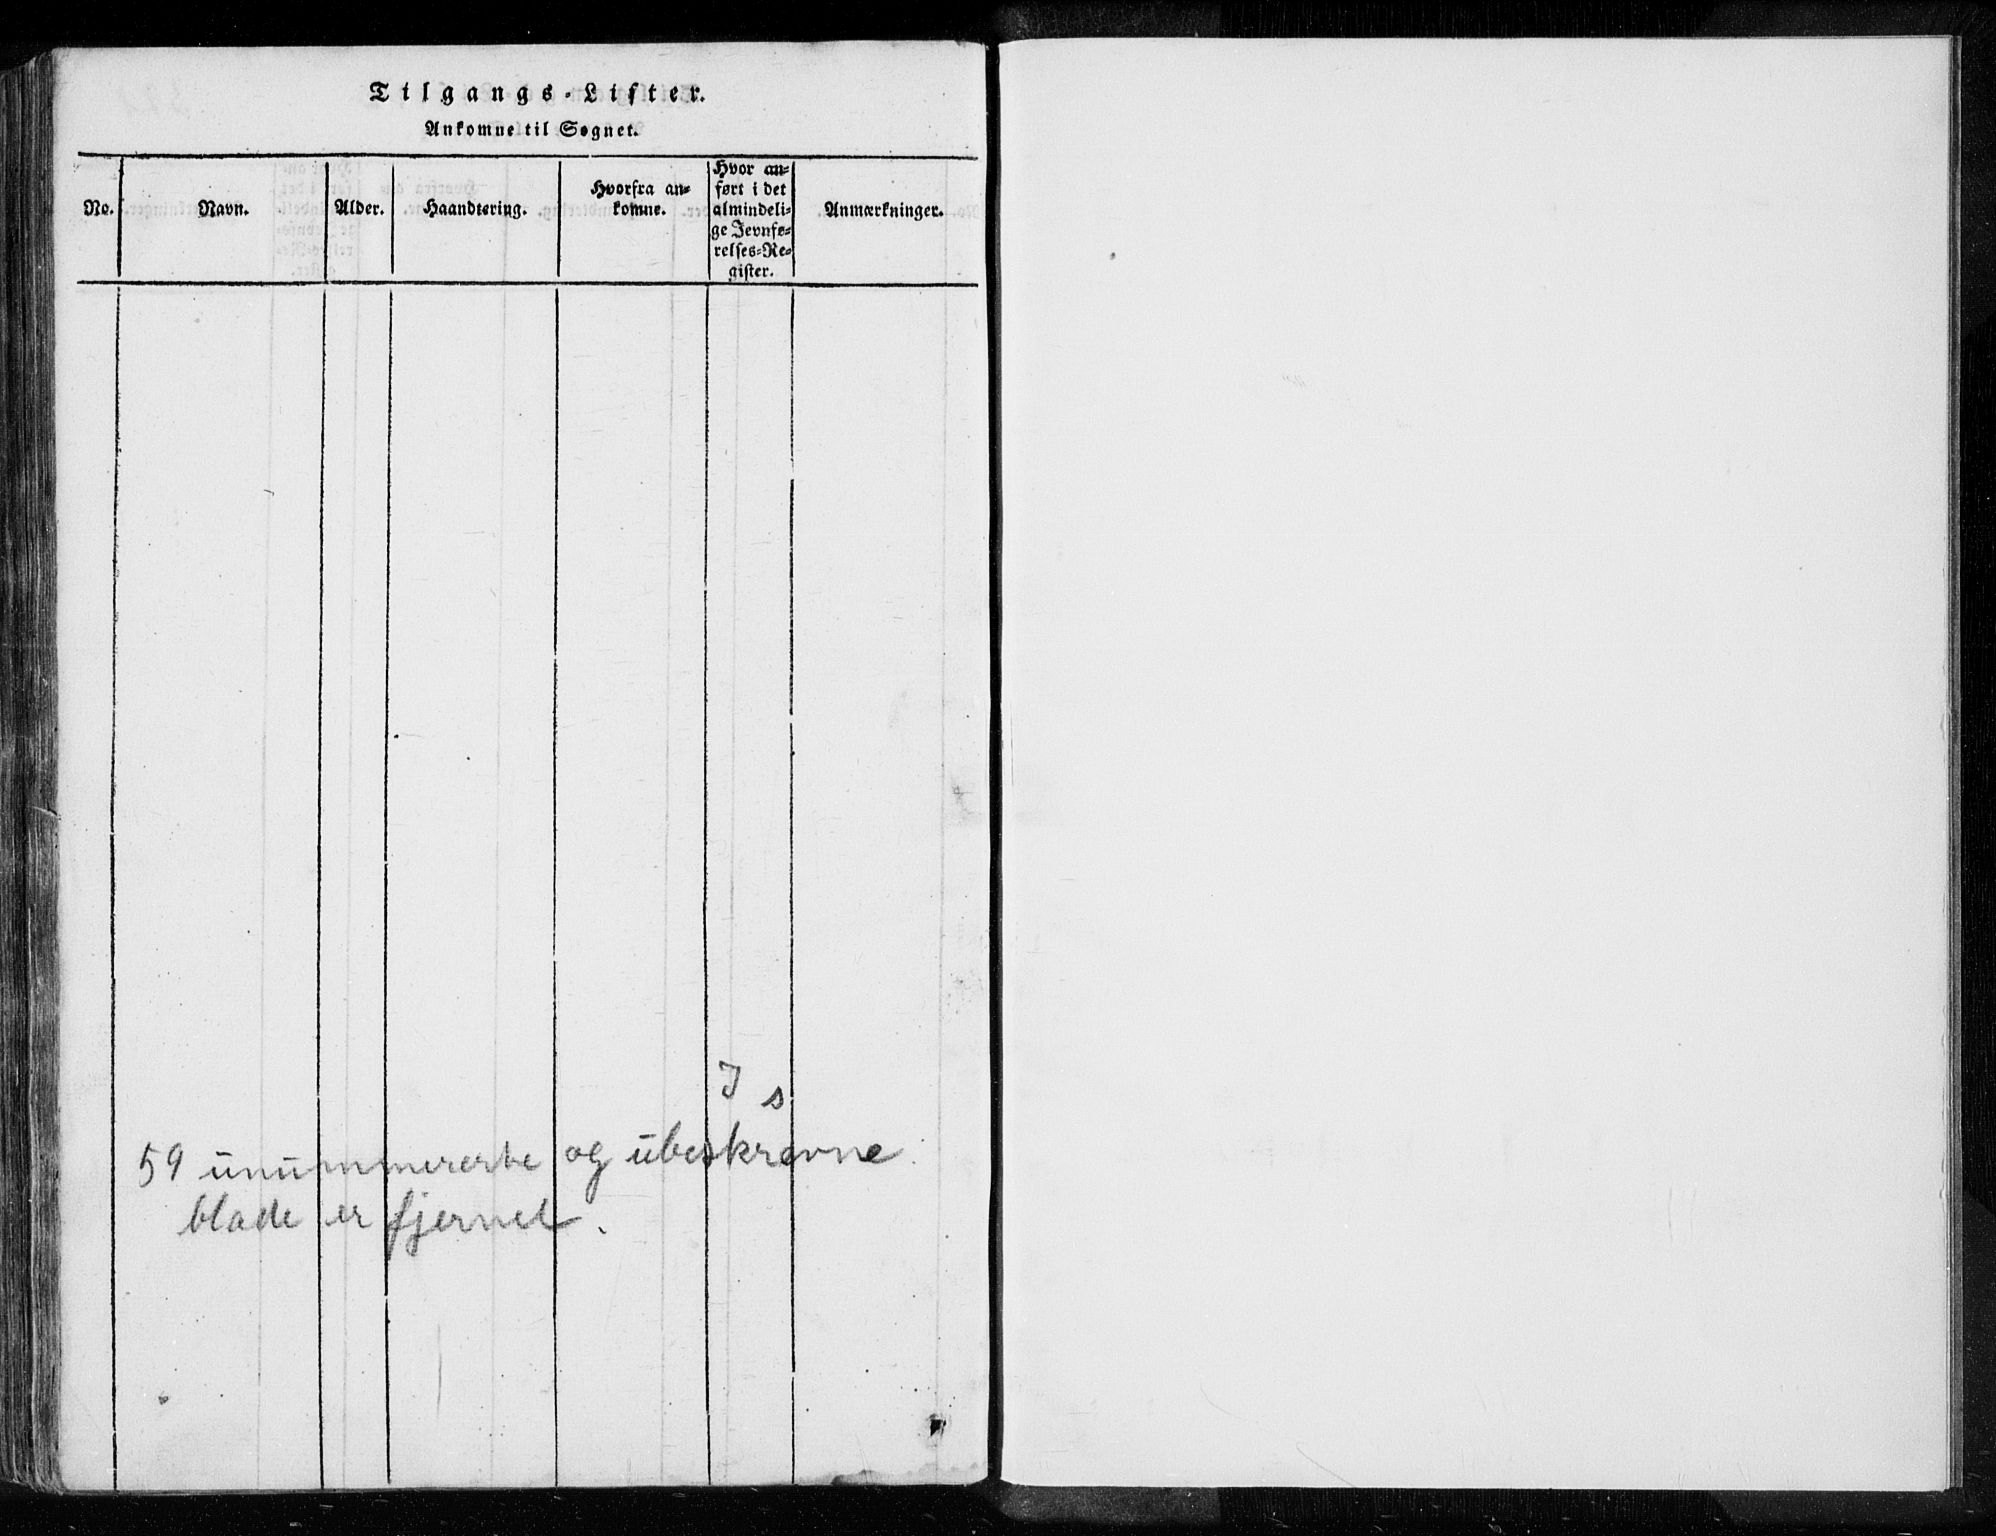 Tilgangs-Lister.
Ankomne til Sognet.
No.
Navn.
Alder.
Haandtering.
Hvorfra an-
komne.
Hvor an-
ført i det
almindeli-
ge Jevnfø-
relses-Re-
gister.
Anmærkninger.
I s
59 unummererte og ubeskrevne
blade er fjernet.